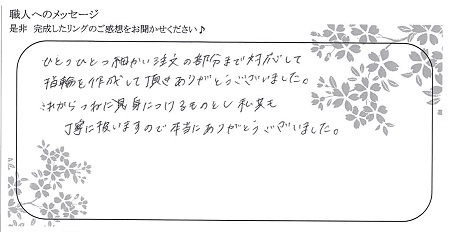 職人へのメッセージ
是非 完成したリングのご感想をお聞かせください♪
ひとつひとつ細かい注文の部分まで対応して
指輪を作成して頂きありがとうございました。
これからつねに身につけるものとし 私共も
丁寧に扱いますので本当にありがとうございました。